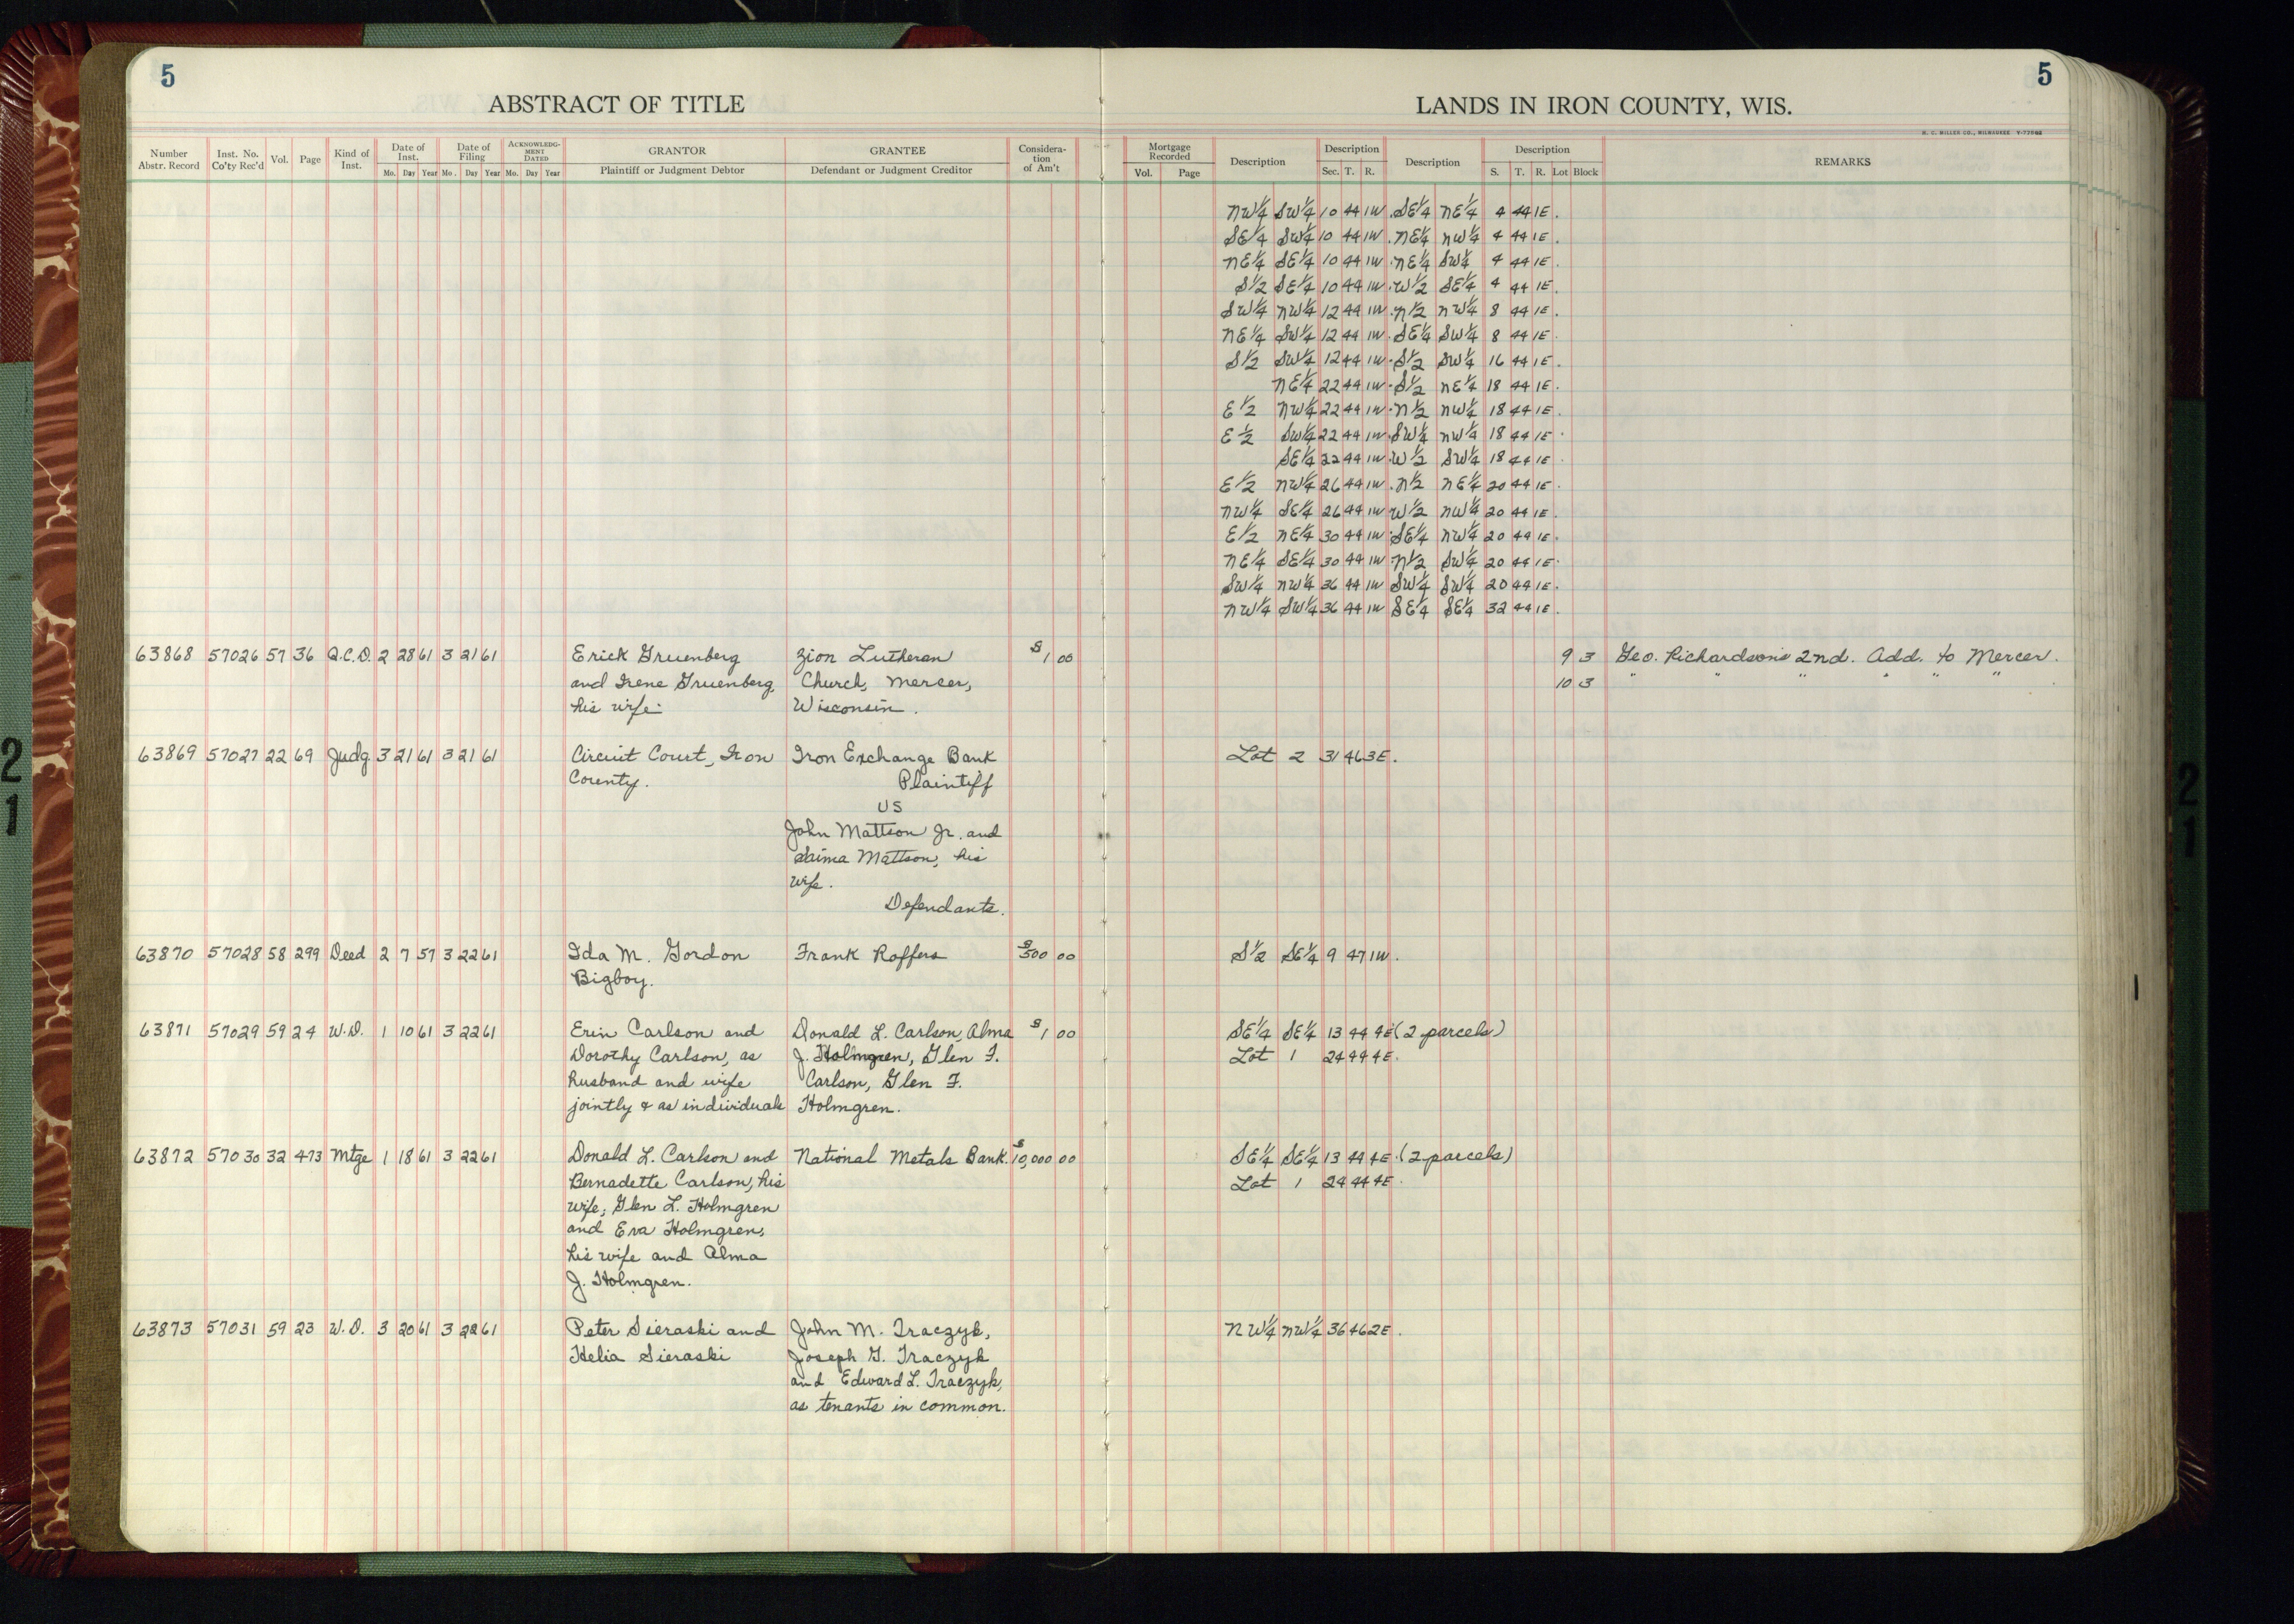 5
5
ABSTRACT OF TITLE
LANDS IN IRON COUNTY, WIS.
H. C. MILLER CO., MILWAUKEE
Number Abstr. Record
Inst. No. Co'ty Rec'd
Vol.
Page
Kind of Inst.
Date of Inst.
Mo. Day Year
Date of Filing
Mo. Day Year
ACKNOWLEDGMENT DATED
Mo. Day Year
GRANTOR
Plaintiff or Judgment Debtor
GRANTEE
Defendant or Judgment Creditor
Consideration of Am't
Mortgage Recorded
Vol. Page
Description
Description
Sec. T. R.
Description
Description
S. T. R. Lot Block
REMARKS
NW¼ SW¼ 10 44 1W. SE¼ NE¼ 4 44 1E.
SE¼ SW¼ 10 44 1W. NE¼ NW¼ 4 44 1E.
NE¼ SE¼ 10 44 1W. NE¼ SW¼ 4 44 1E.
S½ SE¼ 10 44 1W. W½ SE¼ 4 44 1E.
SW¼ NW¼ 12 44 1W. N½ NW¼ 8 44 1E.
NE¼ SW¼ 12 44 1W. SE¼ SW¼ 8 44 1E.
S½ SW¼ 12 44 1W. S½ SW¼ 16 44 1E.
NE¼ 22 44 1W. S½ NE¼ 18 44 1E.
E½ NW¼ 22 44 1W. N½ NW¼ 18 44 1E.
E½ SW¼ 22 44 1W. SW¼ NW¼ 18 44 1E.
SE¼ 22 44 1W. W½ SW¼ 18 44 1E.
E½ NW¼ 26 44 1W. N½ NE¼ 20 44 1E.
NW¼ SE¼ 26 44 1W W½ NW¼ 20 44 1E.
E½ NE¼ 30 44 1W. SE¼ NW¼ 20 44 1E.
NE¼ SE¼ 30 44 1W. N½ SW¼ 20 44 1E.
SW¼ NW¼ 36 44 1W SW¼ SW¼ 20 44 1E.
NW¼ SW¼ 36 44 1W SE¼ SE¼ 32 44 1E.
63868 57026 57 36 Q.C.D. 2 28 61 3 21 61 Erick Gruenberg Zion Lutheran $1 00 9 3 Geo. Richardson's 2nd. Add. to Mercer.
and Irene Gruenberg, Church, Mercer, 10 3 " " " " " "
his wife. Wisconsin.
63869 57027 22 69 Judg. 3 21 61 3 21 61 Circuit Court, Iron Iron Exchange Bank Lot 2 31 46 3E.
County. Plaintiff
vs
John Mattson Jr. and
Saima Mattson, his
wife.
Defendants.
63870 57028 58 299 Deed 2 7 57 3 22 61 Ida M. Gordon Frank Roffers $500 00 S½ SE¼ 9 47 1W.
Bigboy.
63871 57029 59 24 W.D. 1 10 61 3 22 61 Erin Carlson and Donald L. Carlson, Alma $1 00 SE¼ SE¼ 13 44 4E (2 parcels)
Dorothy Carlson, as J. Holmgren, Glen F. Lot 1 24 44 4E.
husband and wife Carlson, Glen F.
jointly & as individuals Holmgren.
63872 57030 32 473 Mtge 1 18 61 3 22 61 Donald L. Carlson and National Metals Bank. $10,000 00 SE¼ SE¼ 13 44 4E. (2 parcels)
Bernadette Carlson, his Lot 1 24 44 4E.
wife; Glen L. Holmgren
and Eva Holmgren,
his wife and Alma
J. Holmgren.
63873 57031 59 23 W.D. 3 20 61 3 22 61 Peter Sieraski and John M. Traczyk, NW¼ NW¼ 36 46 2E.
Helia Sieraski Joseph G. Traczyk
and Edward L. Traczyk,
as tenants in common.
21
21